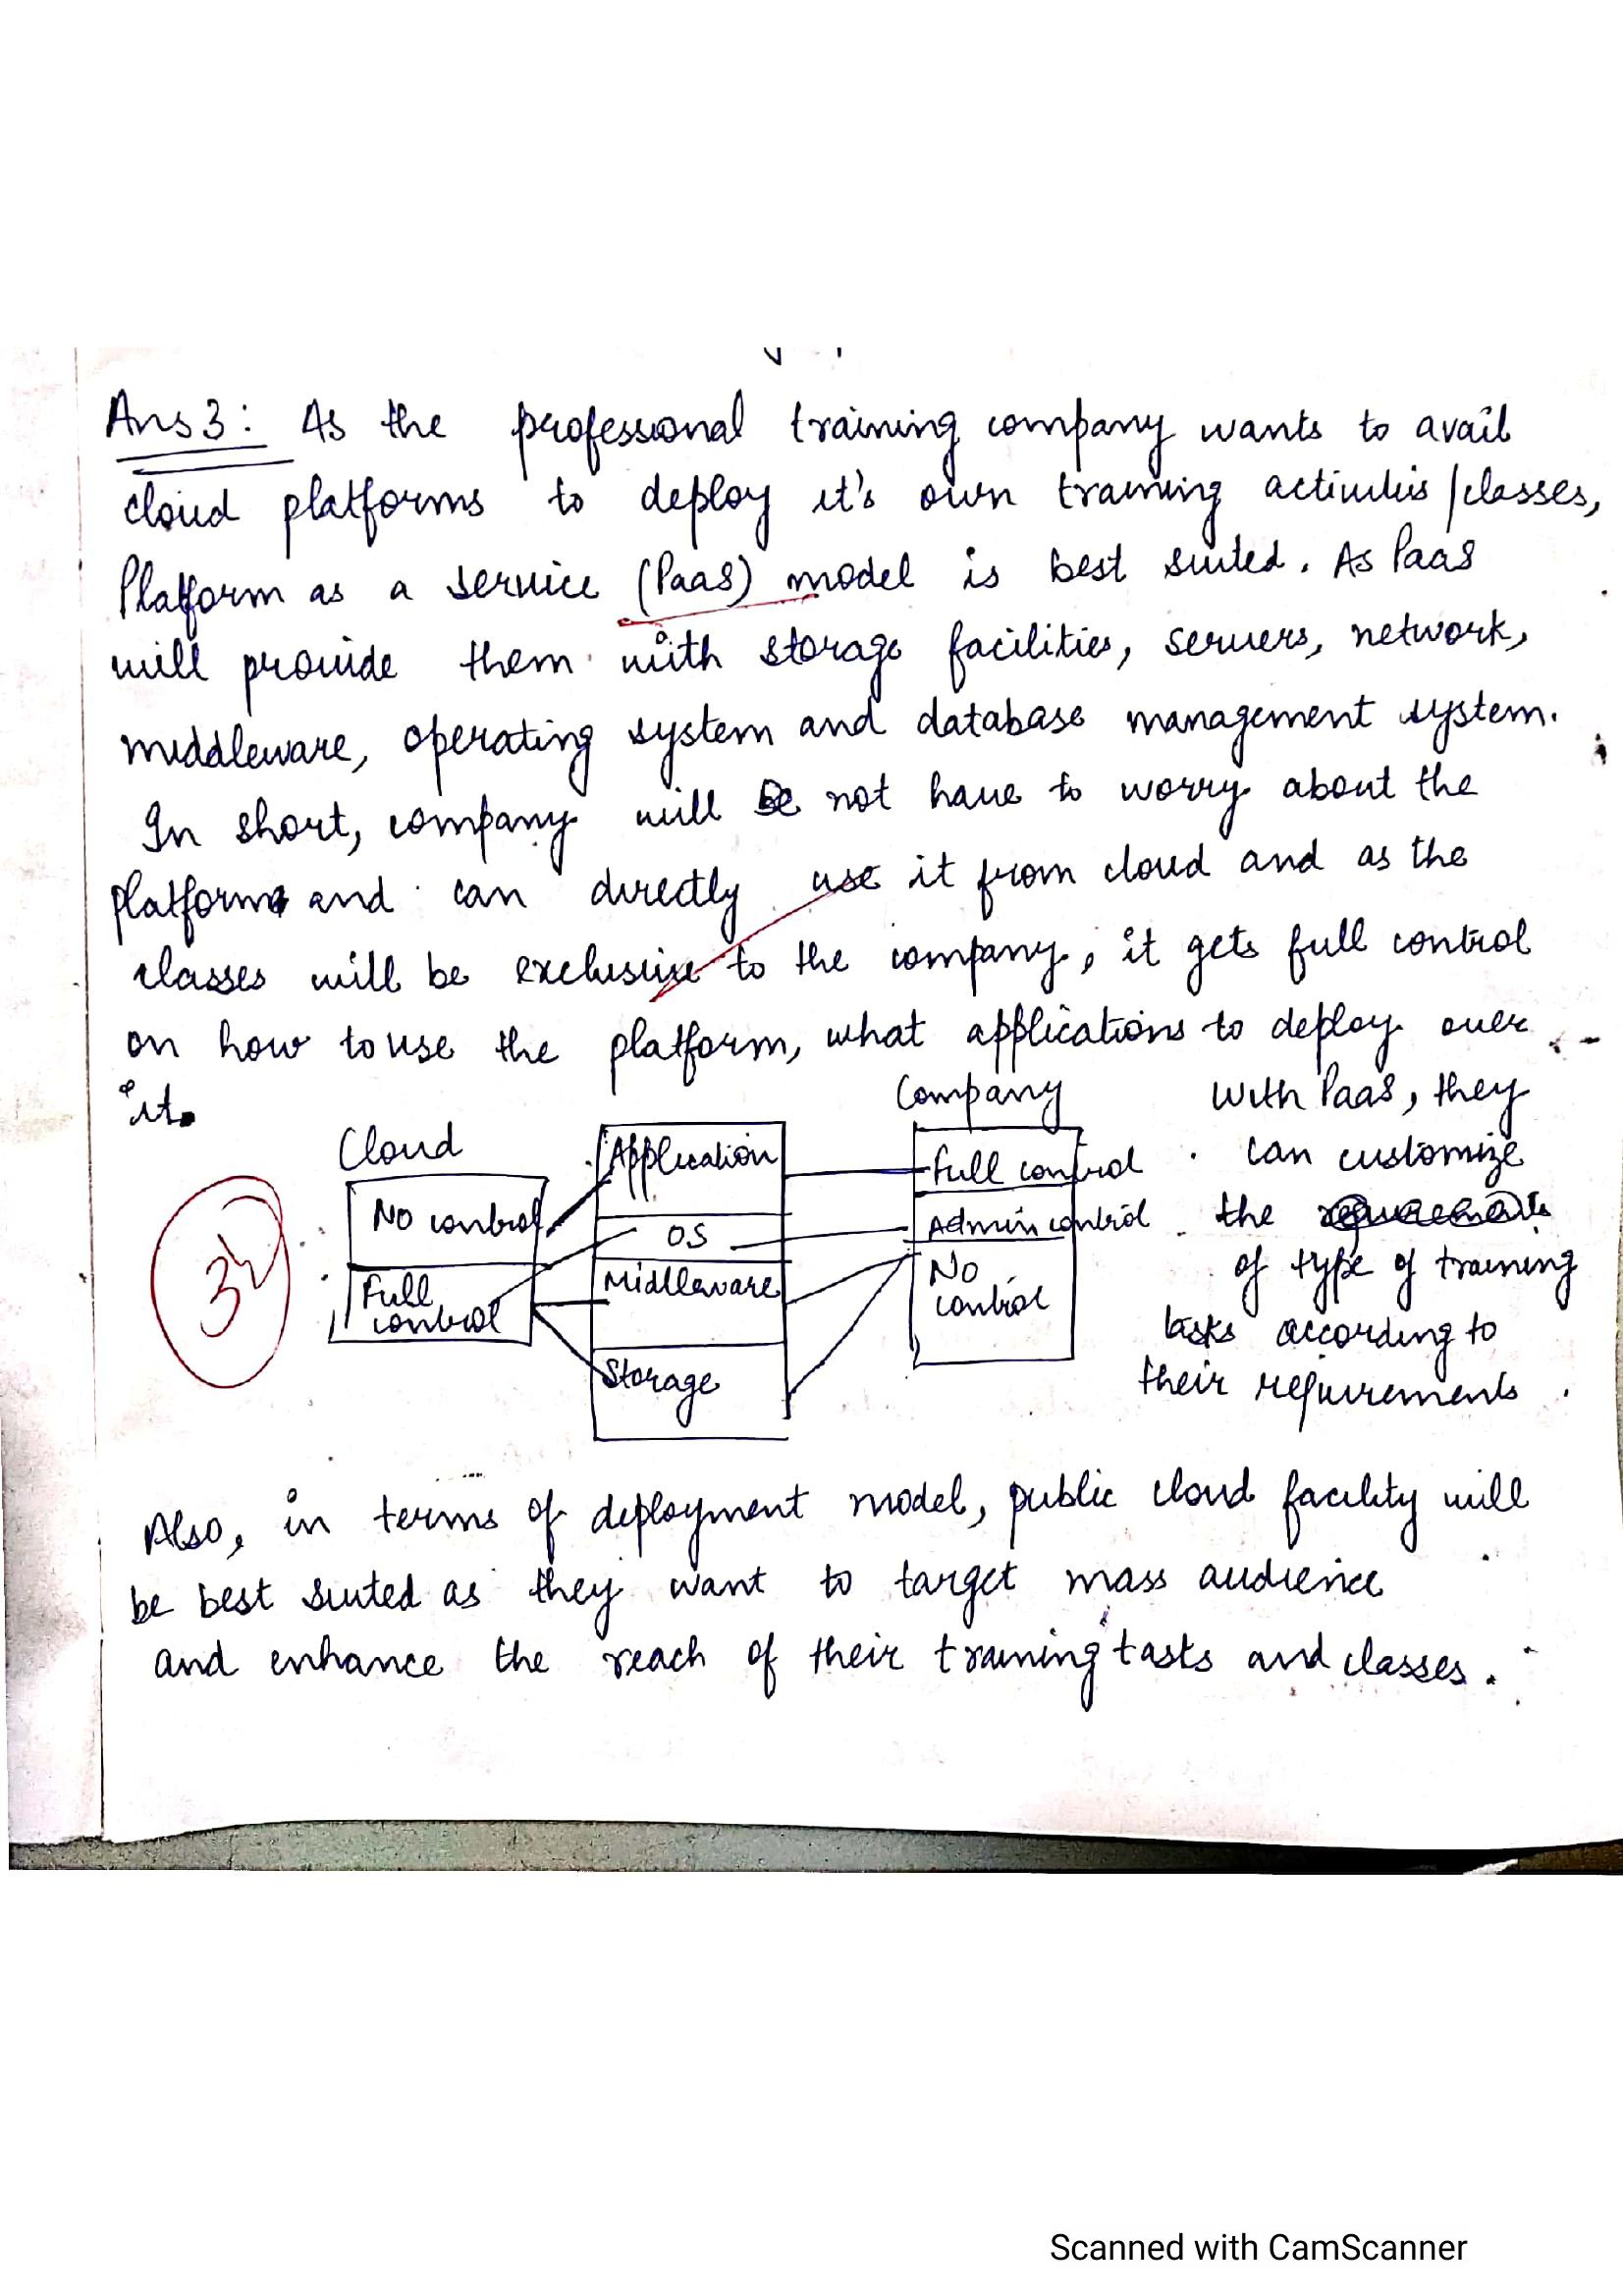 Ans 3: As the professional training company wants to avail
cloud platforms to deploy it's own training activities/classes,
Platform as a service (PaaS) model is best suited. As PaaS
will provide them with storage facilities, servers, network,
middleware, operating system and database management system.
In short, company will be not have to worry about the
platform and can directly use it from cloud and as the
classes will be exclusive to the company, it gets full control
on how to use the platform, what applications to deploy over
it.
Cloud
No control
Full
control
Application
OS
Middleware
Storage
Company
Full control
Admin control
No
control
With PaaS, they
can customize
the
of type of training
tasks according to
their requirements.
Also, in terms of deployment model, public cloud facility will
be best suited as they want to target mass audience
and enhance the reach of their training tasks and classes.
Scanned with CamScanner